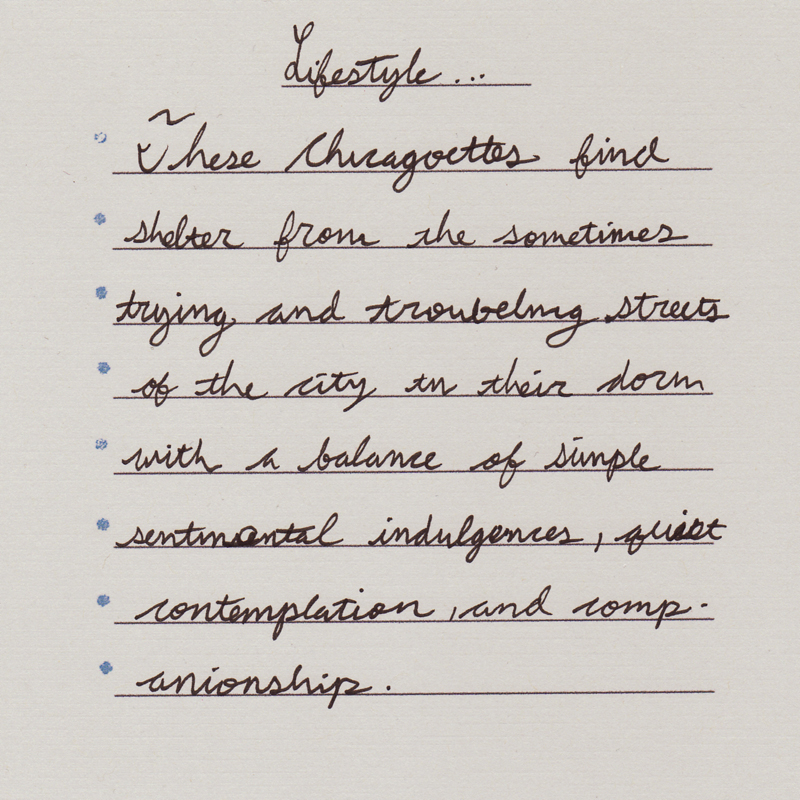 Lifestyle...
These Chicagoettes find
shelter from the sometimes
trying and troubeling streets
of the city in their dorm
with a balance of simple
sentimental indulgences, quiet
contemplation, and comp-
anionship.